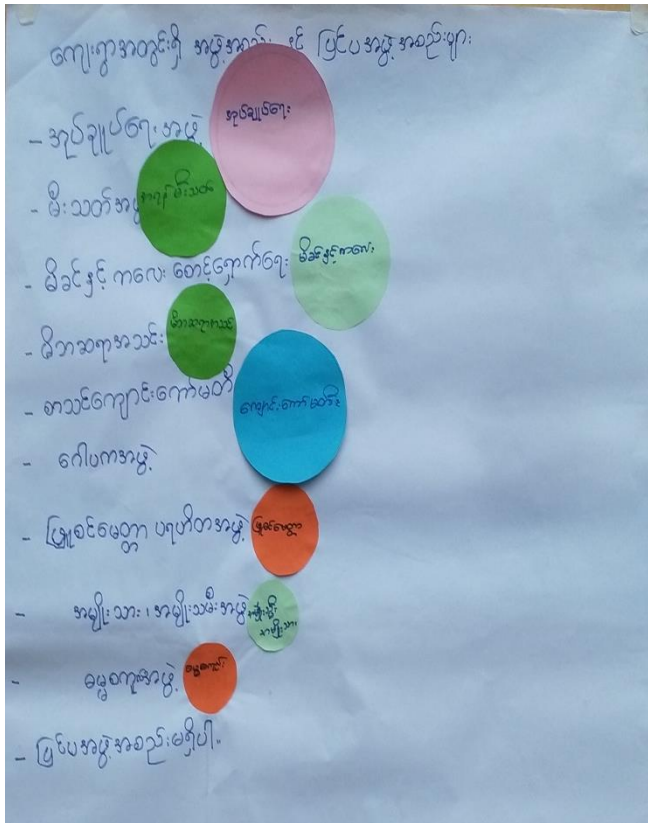 ကျေးရွာအတွင်းရှိ အဖွဲ့အစည်း နှင့် ပြင်ပအဖွဲ့အစည်းများ
- အုပ်ချုပ်ရေးအဖွဲ့ အုပ်ချုပ်ရေး
- မီးသတ်အဖွဲ့ အရန်မီးသတ်
- မိခင်နှင့်ကလေး စောင့်ရှောက်ရေး မိခင်နှင့်ကလေး
- မိဘဆရာအသင်း မိဘဆရာအသင်း
- စာသင်ကျောင်းကော်မတီ ကျောင်းကော်မတီ
- ဂေါပကအဖွဲ့
- ဖြူစင်မေတ္တာ ပရဟိတအဖွဲ့ ဖြူစင်မေတ္တာ
- အမျိုးသား၊ အမျိုးသမီးအဖွဲ့ အမျိုးသမီး
အမျိုးသား
- ဓမ္မစကူးအဖွဲ့
- ပြင်ပအဖွဲ့အစည်းမရှိပါ။